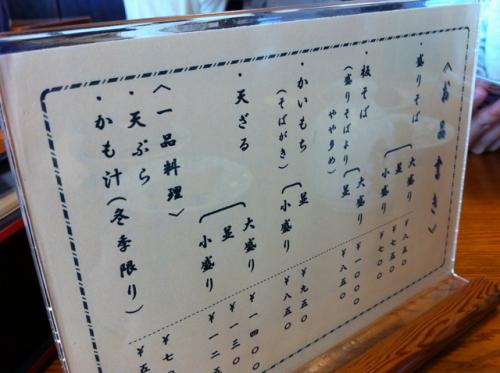 〈お品書き〉
・盛りそば
大盛り
並 ¥七五〇
小盛り ¥七〇〇
・板そば
(盛りそばより
やや多め)
大盛り ¥一〇〇〇
並 ¥八五〇
・かいもち
(そばがき)
並 ¥九五〇
小盛り ¥八五〇
・天ざる
大盛り ¥一四〇〇
並 ¥一三〇〇
小盛り ¥一二五
〈一品料理〉
・天ぷら ¥七〇
・かも汁(冬季限り) ¥五